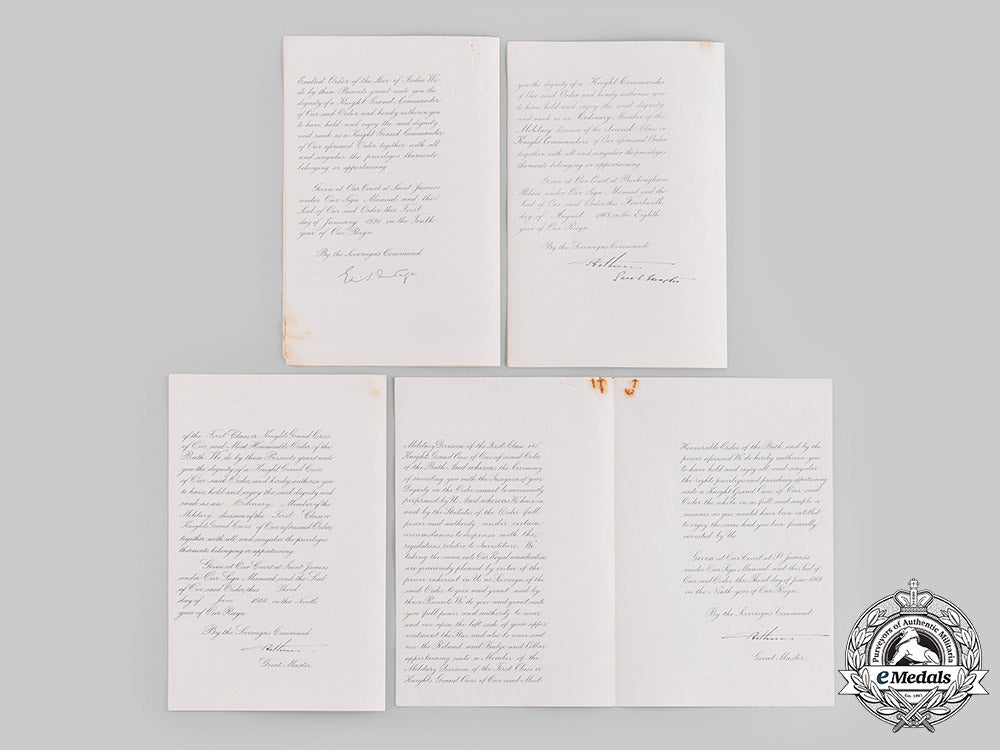 Exalted Order of the Star of India We
do by these Presents grant unto you the
dignity of a Knight Grand Commander
of Our said Order and hereby authorize you
to have hold and enjoy the said dignity
and rank as a Knight Grand Commander
of Our aforesaid Order together with all
and singular the privileges thereunto
belonging or appertaining
Given at Our Court at Saint James's
under Our Sign Manual and the
Seal of Our said Order this First
day of January 1930 in the
year of Our Reign
By the Sovereign's Command
you the dignity of a Knight Commander
of Our said Order and hereby authorize you
to have, hold and enjoy the said dignity
and rank as an Ordinary Member of the
Military division of the Second Class or
Knight Commanders of Our aforesaid Order
together with all and singular the privileges
thereunto belonging or appertaining
Given at Our Court at Buckingham
Palace under Our Sign Manual and the
Seal of Our said Order this Fourteenth
day of August in the Eighth
year of Our Reign
By the Sovereign's Command
Great Master
of the First Class or Knight Grand Cross
of Our said Most Honourable Order of the
Bath We do by these Presents grant unto
you the dignity of a Knight Grand Cross
of Our said Order, and hereby authorize you
to have, hold and enjoy the said dignity and
rank as an Ordinary Member of the
Military division of the First Class or
Knights Grand Cross of Our aforesaid Order,
together with all and singular the privileges
thereunto belonging or appertaining
Given at Our Court at Saint James's
under Our Sign Manual and the Seal
of Our said Order, this Third
day of June in the Ninth
year of Our Reign
By the Sovereign's Command
Great Master
Military Division of the First Class or
Knights Grand Cross of Our aforesaid Order
of the Bath And whereas the Ceremony
of investing you with the Insignia of your
Dignity in the Order cannot be conveniently
performed by Us And whereas We have in
and by the Statutes of the Order full
power and authority under certain
circumstances to dispense with the
regulations relative to Investiture We
taking the same into Our Royal consideration
are graciously pleased by virtue of the
power inherent in Us as Sovereign of the
said Order to give and grant and by
these Presents We do give and grant unto
you full power and authority to wear
and use upon the left side of your upper
vestment the Star and also to wear and
use the Riband and Badge and Collar
appertaining unto a Member of the
Military Division of the First Class or
Knights Grand Cross of Our said Most
Honourable Order of the Bath and by the
power aforesaid We do hereby authorize you
to have hold and enjoy all and singular
the rights privileges and precedency appertaining
unto a Knight Grand Cross of Our said
Order the whole in as full and ample a
manner as you would have been entitled
to enjoy the same had you been formally
invested by Us
Given at Our Court at St James's
under Our Sign Manual and the Seal of
Our said Order this Third day of June
in the Ninth year of Our Reign
By the Sovereign's Command
Great Master
Purveyors of Authentic Militaria
eMedals